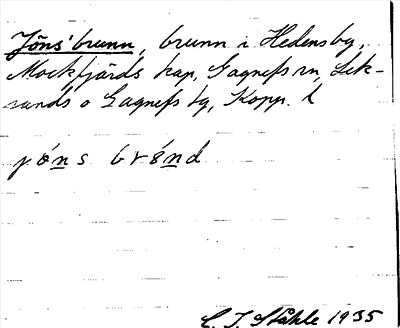 Jöns'brunn, brunn i Hedensby,
Mockfjärds kap, Gagnefs sn, Lek-
sands o Gagnefs tg, Kopp. l
jöns brönd
C. I. Ståhle 1935